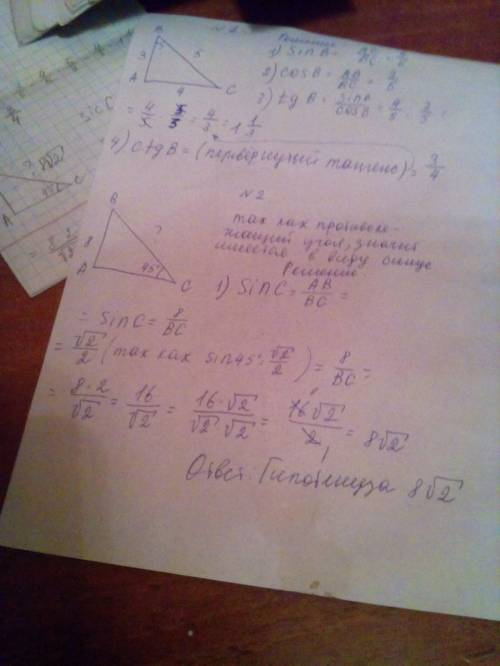 N 1
B
3
5
A
4
C
Решение
1) sin B = AC/BC = 4/5
2) cos B = AB/BC = 3/5
3) tg B = sin B/cos B = 4/5 : 3/5 =
= 4/5 · 5/3 = 4/3 = 1 1/3
4) ctg B = (перевёрнутый тангенс) = 3/4
N 2
B
8
?
A
45°
C
так как противоле-
жащий угол, значит
имеется в виду синус
Решение:
1) sin C = AB/BC =
= sin C = 8/BC
= √2/2 (так как sin 45° = √2/2) = 8/BC =
= 8·2/√2 = 16/√2 = 16·√2/√2·√2 = 16√2/2 = 8√2
Ответ: Гипотенуза 8√2